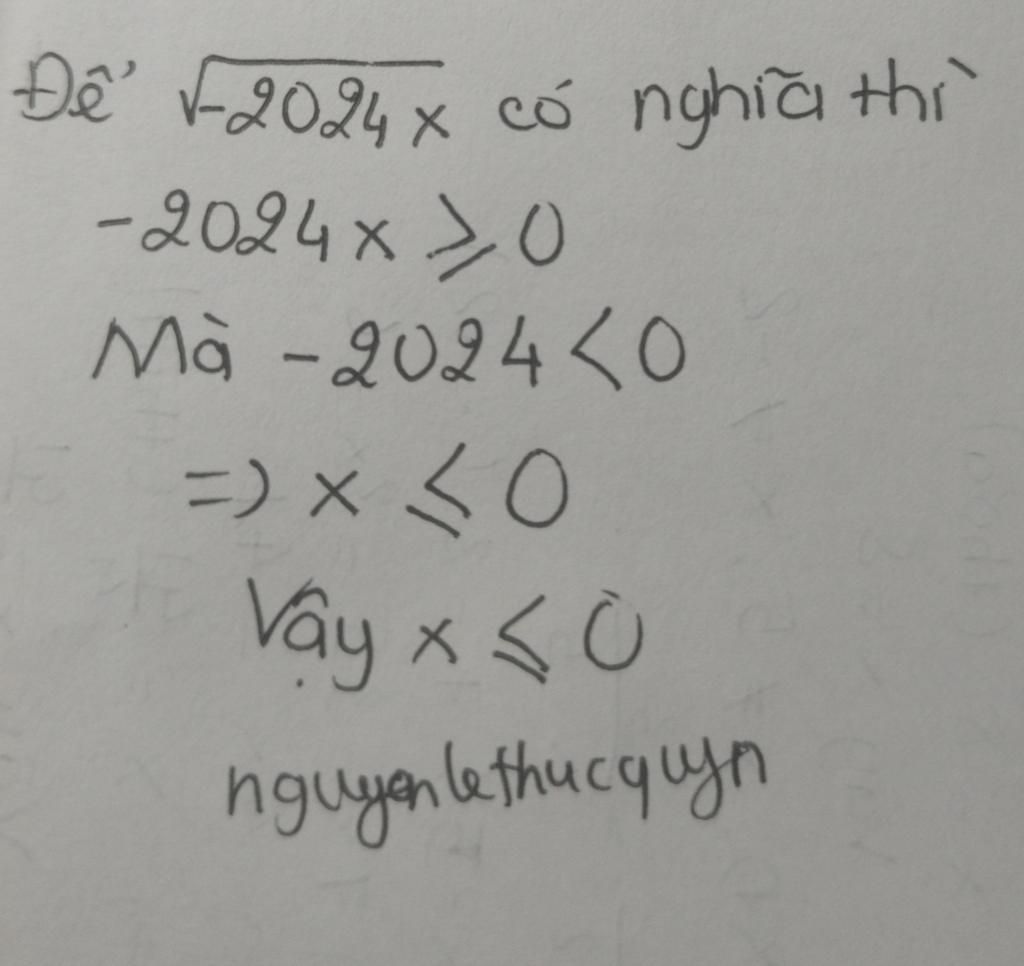 Để √-2024x có nghĩa thì
-2024x ⩾ 0
Mà -2024 < 0
=> x ⩽ 0
Vậy x ⩽ 0
nguyenlethucquyn